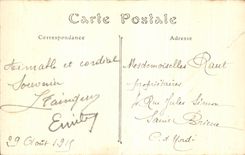 Carte Postale
Correspondance
Adresse
Aimable et cordial
Souvenir
29 Août 1915
Mesdemoiselles Raut
propriétaires
Rue Jules Simon
Saint Brieuc
C. du Nord